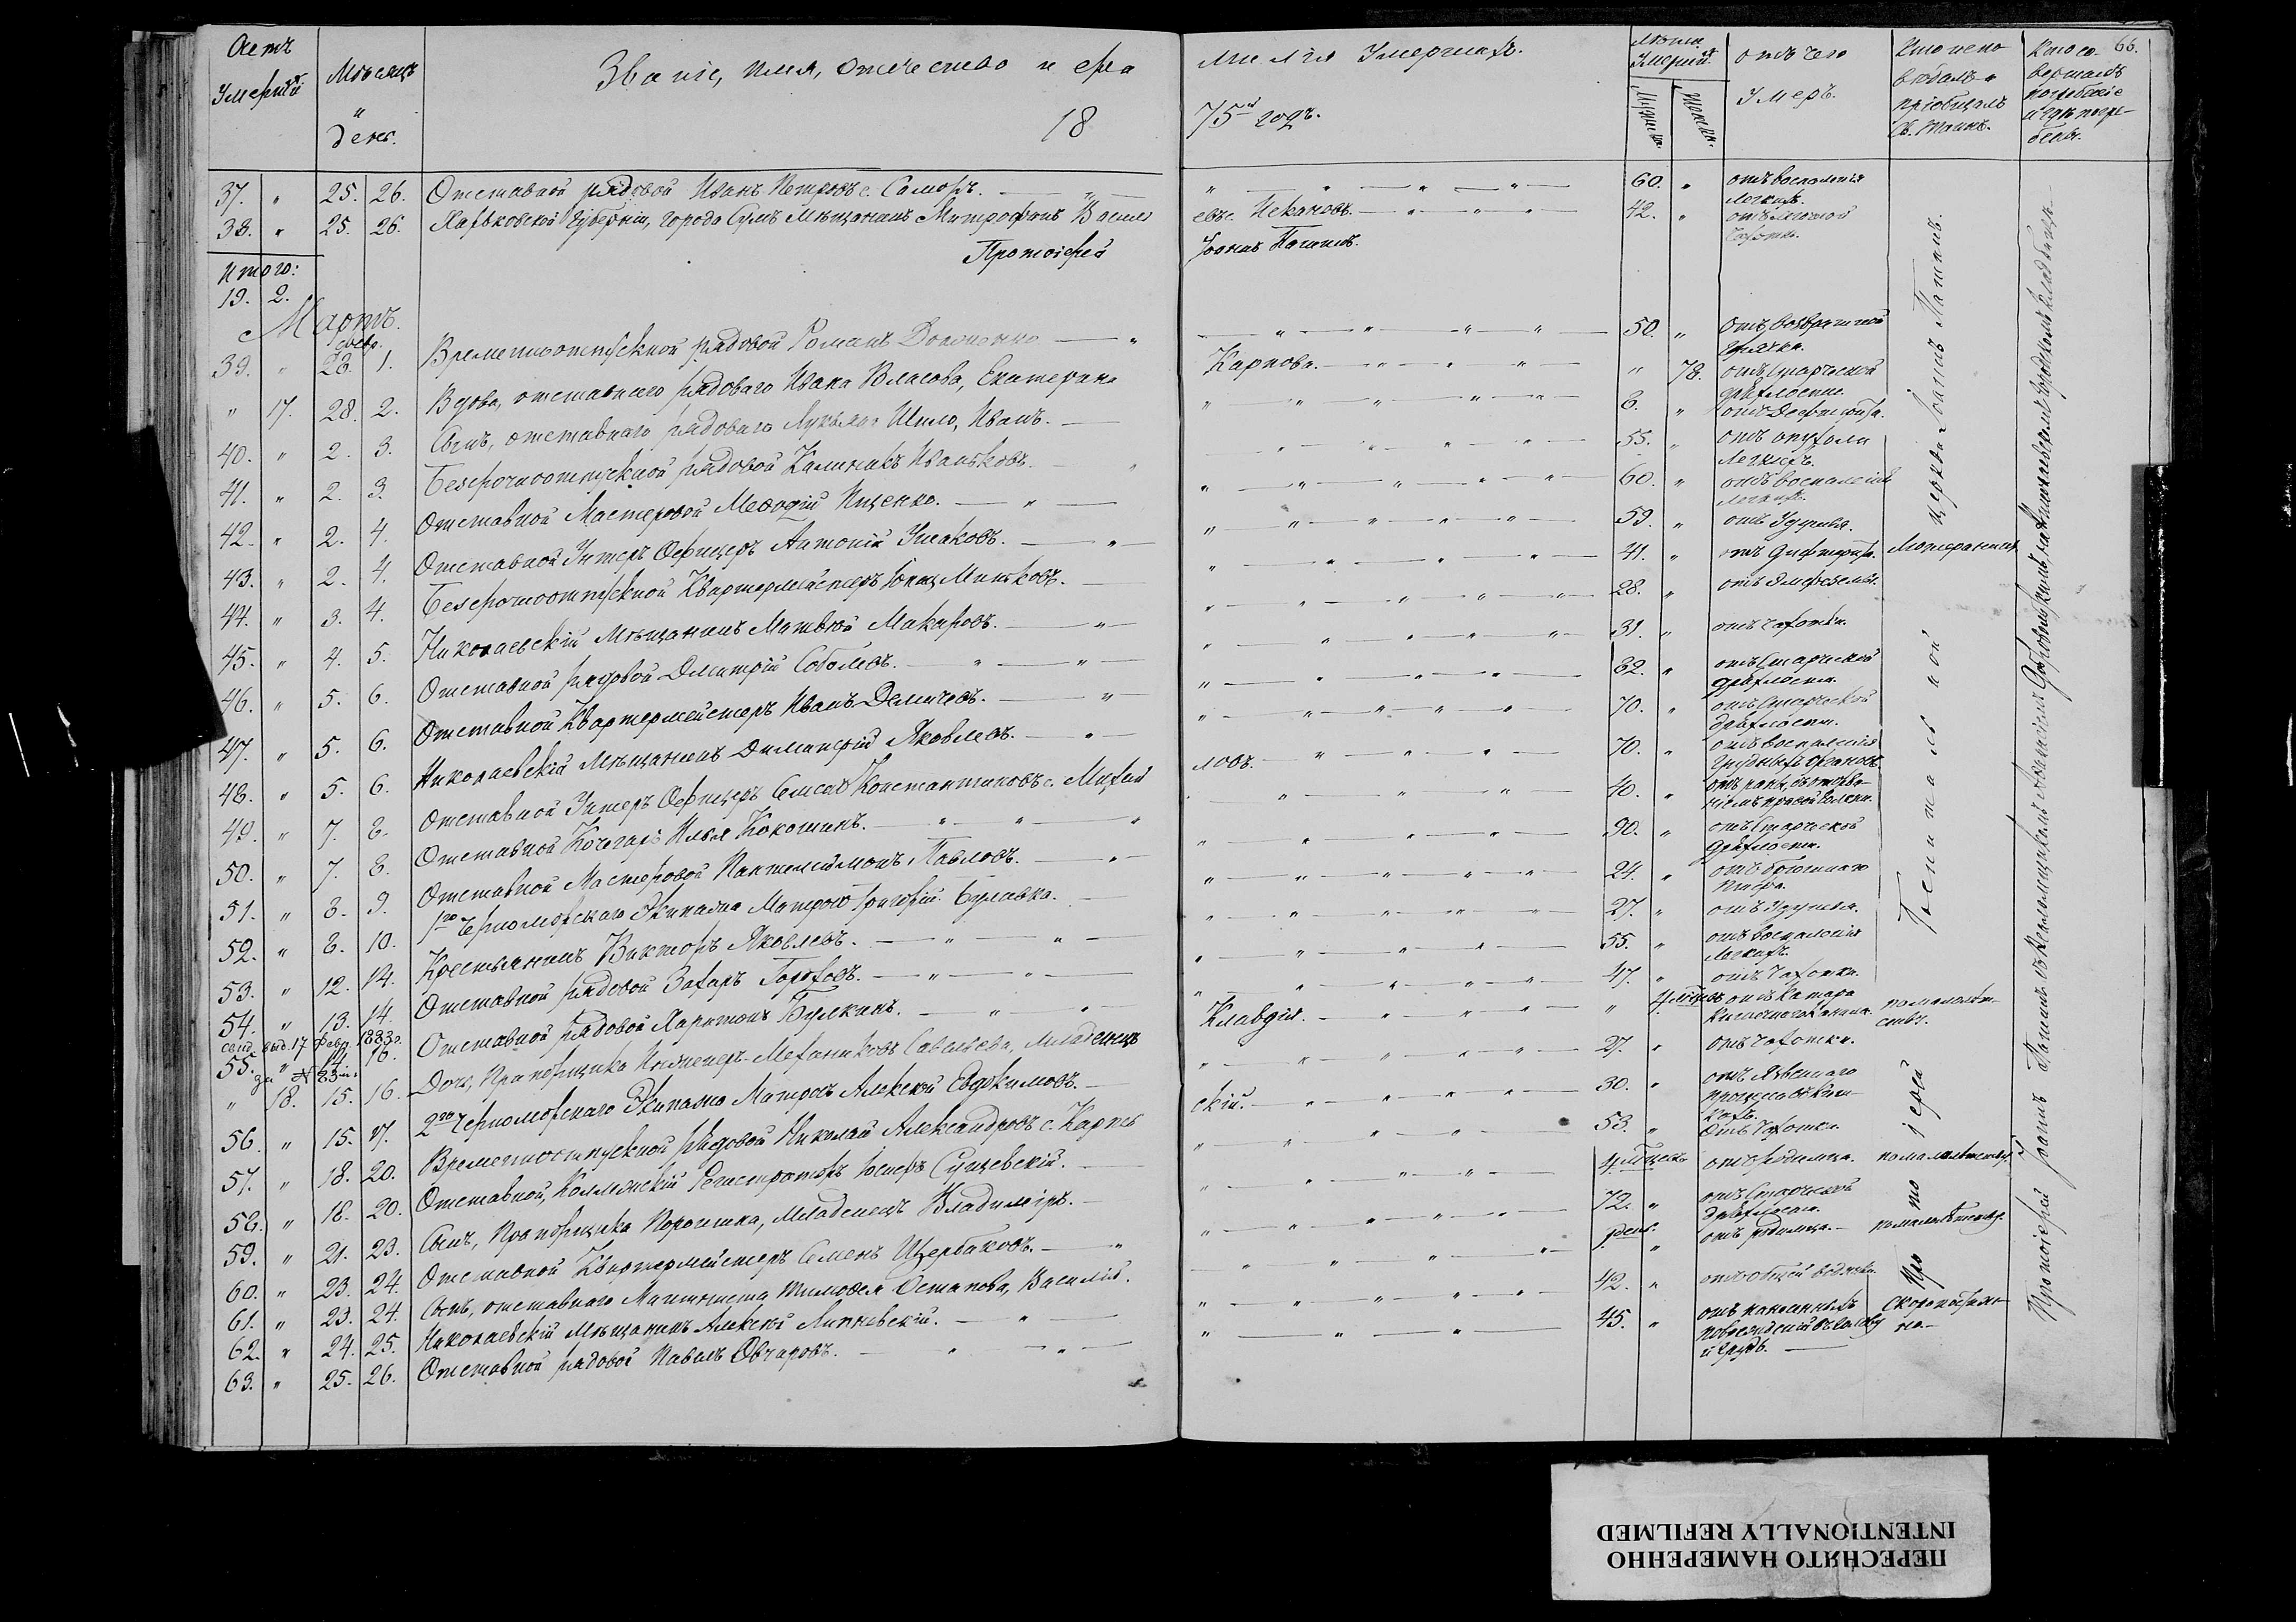 Счетъ Умершихъ
Мѣсяцъ и День.
Званіе, имя, отчество и фа
милія Умершихъ.
18
75й годъ.
Лѣта Умершихъ.
Мужеска.
Женска.
отъ чего Умеръ.
Кто исповѣдалъ и пріобщалъ Св. Таинъ.
Кто совершалъ погребеніе и гдѣ погребены.
66.
37. " 25. 26. Отставной рядовой Иванъ Петровъ с. 60. " отъ воспаленія легкихъ.
38. " 25. 26. Харьковской Губерніи, города Сумъ Мѣщанинъ Митрофанъ Василь
евъ с. 42. " отъ чахотки.
Протоіерей
Іоаннъ
Итого:
19. 2.
Мартъ.
февр.
39. " 28. 1. Временноотпускной рядовой Романъ 50. " отъ возвратной горячки.
" 17. 28. 2. Вдова, отставнаго рядоваго Ивана Власова, Екатерина
Карпова. " 78. отъ Старческой дряхлости.
40. " 2. 3. Сынъ, отставнаго рядоваго Лукьяна Шило, Иванъ. 8. " отъ Дефтерита.
41. " 2. 3. Безсрочноотпускной рядовой Калиникъ Иваньковъ. 55. " отъ опухоли легкихъ.
42. " 2. 4. Отставной Мастеровой Меѳодій Ищенко. 60. " отъ воспаленія легкихъ.
43. " 2. 4. Отставной Унтеръ Офицеръ Антоній Ушаковъ. 59. " отъ Удушья.
44. " 3. 4. Безсрочноотпускной Квартермейстеръ Миньковъ. 41. " отъ дифтерита. Лютеранинъ
45. " 4. 5. Николаевскій Мѣщанинъ Матвѣй Макаровъ. 28. "
46. " 5. 6. Отставной рядовой Дмитрій Соболевъ. 31. " отъ чахотки.
47. " 5. 6. Отставной Квартермейстеръ Иванъ Демичевъ. 82. " отъ Старческой дряхлости.
48. " 5. 6. Николаевскій Мѣщанинъ Яковлевъ. 70. " отъ Старческой дряхлости.
49. " 7. 8. Отставной Унтеръ Офицеръ Елисей Константиновъ с. Михай
ловъ. 70. " отъ воспаленія грудныхъ органовъ.
50. " 7. 8. Отставной Кочегаръ Илья Кокошинъ. 40. "
51. " 8. 9. Отставной Мастеровой Пантелеймонъ Павловъ. 90. " отъ Старческой дряхлости.
52. " 8. 10. 1го Черноморскаго Экипажа Матросъ Григорій Булавка. 24. " отъ брюшнаго тифа.
53. " 12. 14. Крестьянинъ Викторъ Яковлевъ. 27. " отъ Удушья.
54. " 13. 14. Отставной рядовой Захаръ Гороховъ. 55. " отъ воспаленія легкихъ.
свид. выд. 17 февр. 1883г.
за № 83м.
55. " 14. 16. Отставной рядовой Харитонъ Булкинъ. 47. " отъ чахотки.
" 18. 15. 16. Дочь, Прапорщика Инженеръ-Механиковъ Савельева, Младенецъ
Клавдія. " 4 мѣсяц. отъ катара кишечнаго канала. по малолѣтству.
56. " 15. 17. 2го Черноморскаго Экипажа Матросъ Алексѣй Евдокимовъ. 27. " отъ чахотки.
57. " 18. 20. Временноотпускной рядовой Николай Александровъ с. Карпов
скій. 30. " отъ Язвеннаго процесса въ кишкахъ.
58. " 18. 20. Отставной, Коллежскій Регистраторъ Іосифъ Сущевскій. 53. " отъ чахотки.
59. " 21. 23. Сынъ, Прапорщика Порошка, Младенецъ Владиміръ. 4 мѣсяц. отъ родимца. по малолѣтству.
60. " 23. 24. Отставной Квартермейстеръ Семенъ Щербаковъ. 72. " отъ Старческой дряхлости.
61. " 23. 24. Сынъ, отставнаго Машиниста Тимоѳея Остапова, Василій. день. " отъ родимца. по малолѣтству.
62. " 24. 25. Николаевскій мѣщанинъ Алексѣй Липневскій. 42. " отъ общей водянки.
63. " 25. 26. Отставной рядовой Павелъ Овчаровъ. 45. " отъ нанесенныхъ поврежденій въ голову и грудь. скоропостижно.
Протоіерей Госпитальной церкви Іоаннъ
Протоіерей Іоаннъ
ПЕРЕСНЯТО НАМЕРЕННО
INTENTIONALLY REFILMED